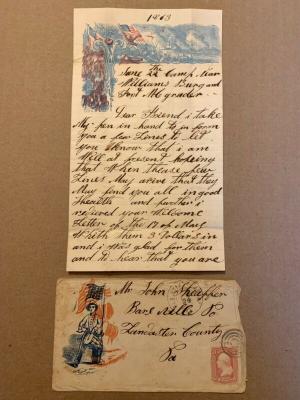 1863
June the 22 Camp near
Williams Burg and
Fort Mcgruder
Dear Friend i take
My pen in hand to in form
you a few Lines to let
you Know that i am
Well at present hopeing
that When thease few
Lines May arive that they
May find you all in good
health and further i
recived your Welcome
Letter of the 17 of May
With them 3 Dollar's in
and i Was glad for them
and to hear that you are
Mr. John Sheaffer
Bare ville Po
Lancaster County
Pa